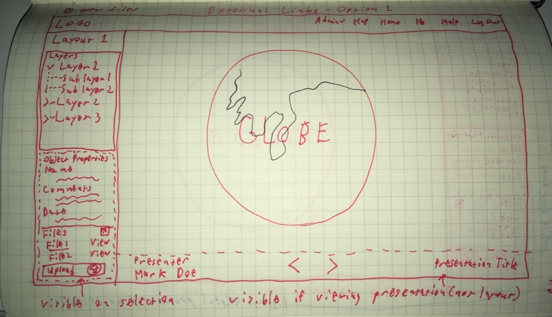 External Links - Option 2
LOGO
Admin Map Home Help Logout
Layout 1
Layers
Layer 2
Sub layer 1
Sub layer 2
Layer 2
Layer 3
GLOBE
Object Properties
Name
Comments
Date
Files
File 1 View
File 2 View
Upload
Presenter
Mark Doe
< >
Presentation Title
visible on selection
visible if viewing presentation (not layout)